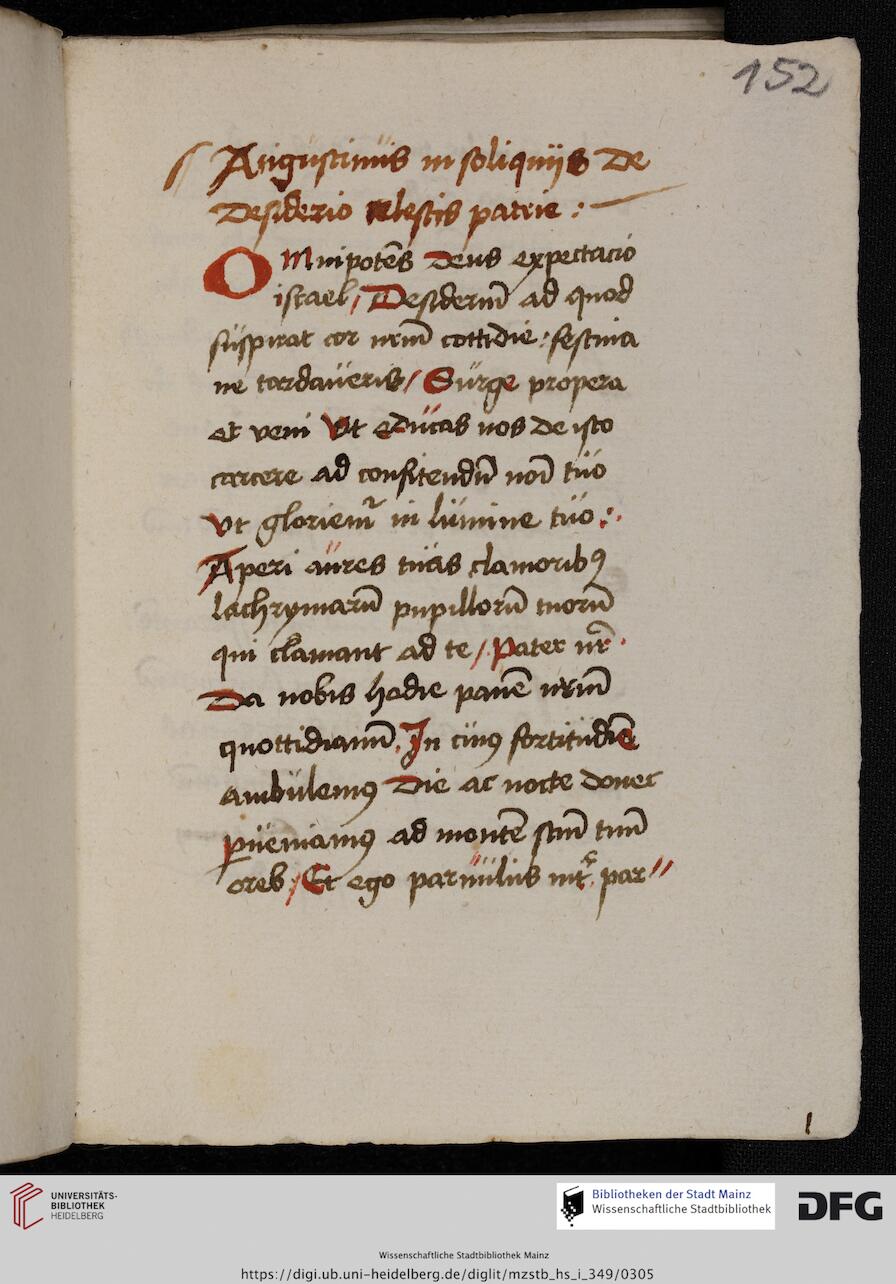 152
Aŭgŭstinŭs in soliquijs De
Desiderio celestis patrie :
OMnipotēs Deus expectacio
israel / Desideriū ad quod
sŭspirat cor nr̄m cottidie : festina
ne tardaŭeris / Sŭrge propera
et veni Vt edŭcas nos de isto
carcere ad confitendū noī tŭo
Vt gloriemᷣ in lŭmine tŭo :.
Aperi aŭres tŭas clamoribꝰ
lachrymarū pupillorū tuorū
qui clamant ad te /. Pater nr̄.
Da nobis hodie panē nr̄m
quottidianū. In cŭiꝰ fortitŭdīe
ambŭlemꝰ Die ac nocte donec
ꝑŭeniamꝰ ad montē scm̄ tuū
oreb / Et ego parŭŭlŭs int̄. par〃
UNIVERSITÄTS-
BIBLIOTHEK
HEIDELBERG
Bibliotheken der Stadt Mainz
Wissenschaftliche Stadtbibliothek
DFG
Wissenschaftliche Stadtbibliothek Mainz
https://digi.ub.uni-heidelberg.de/diglit/mzstb_hs_i_349/0305